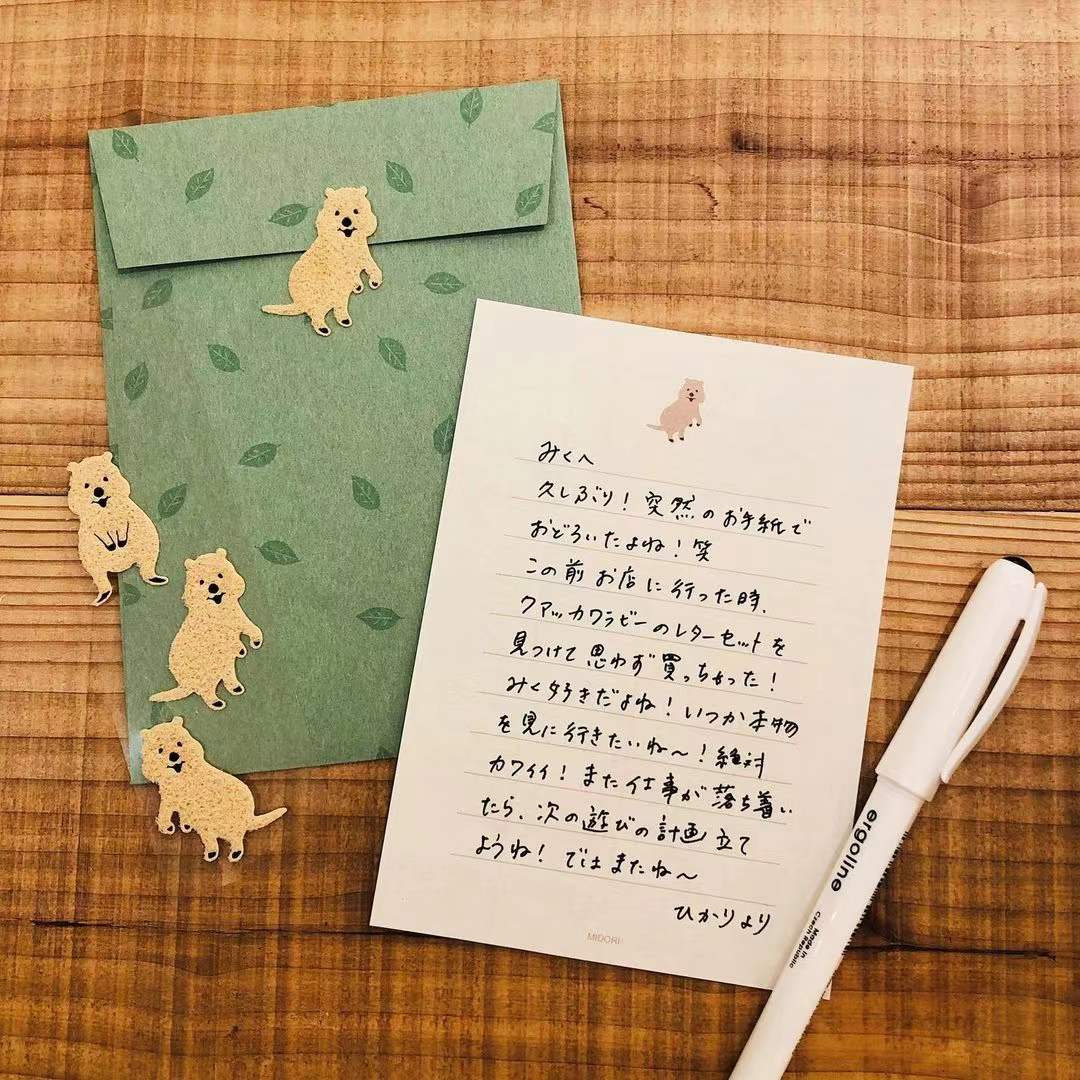 みくへ
久しぶり！突然のお手紙で
おどろいたよね！笑
この前お店に行った時、
クアッカワラビーのレターセットを
見つけて思わず買っちゃった！
みく好きだよね！いつか本物
を見に行きたいね〜！絶対
カワイイ！また仕事が落ち着い
たら、次の遊びの計画立て
ようね！ではまたね〜
ひかりより
MIDORI
ergoline
Made in
Czech Republic